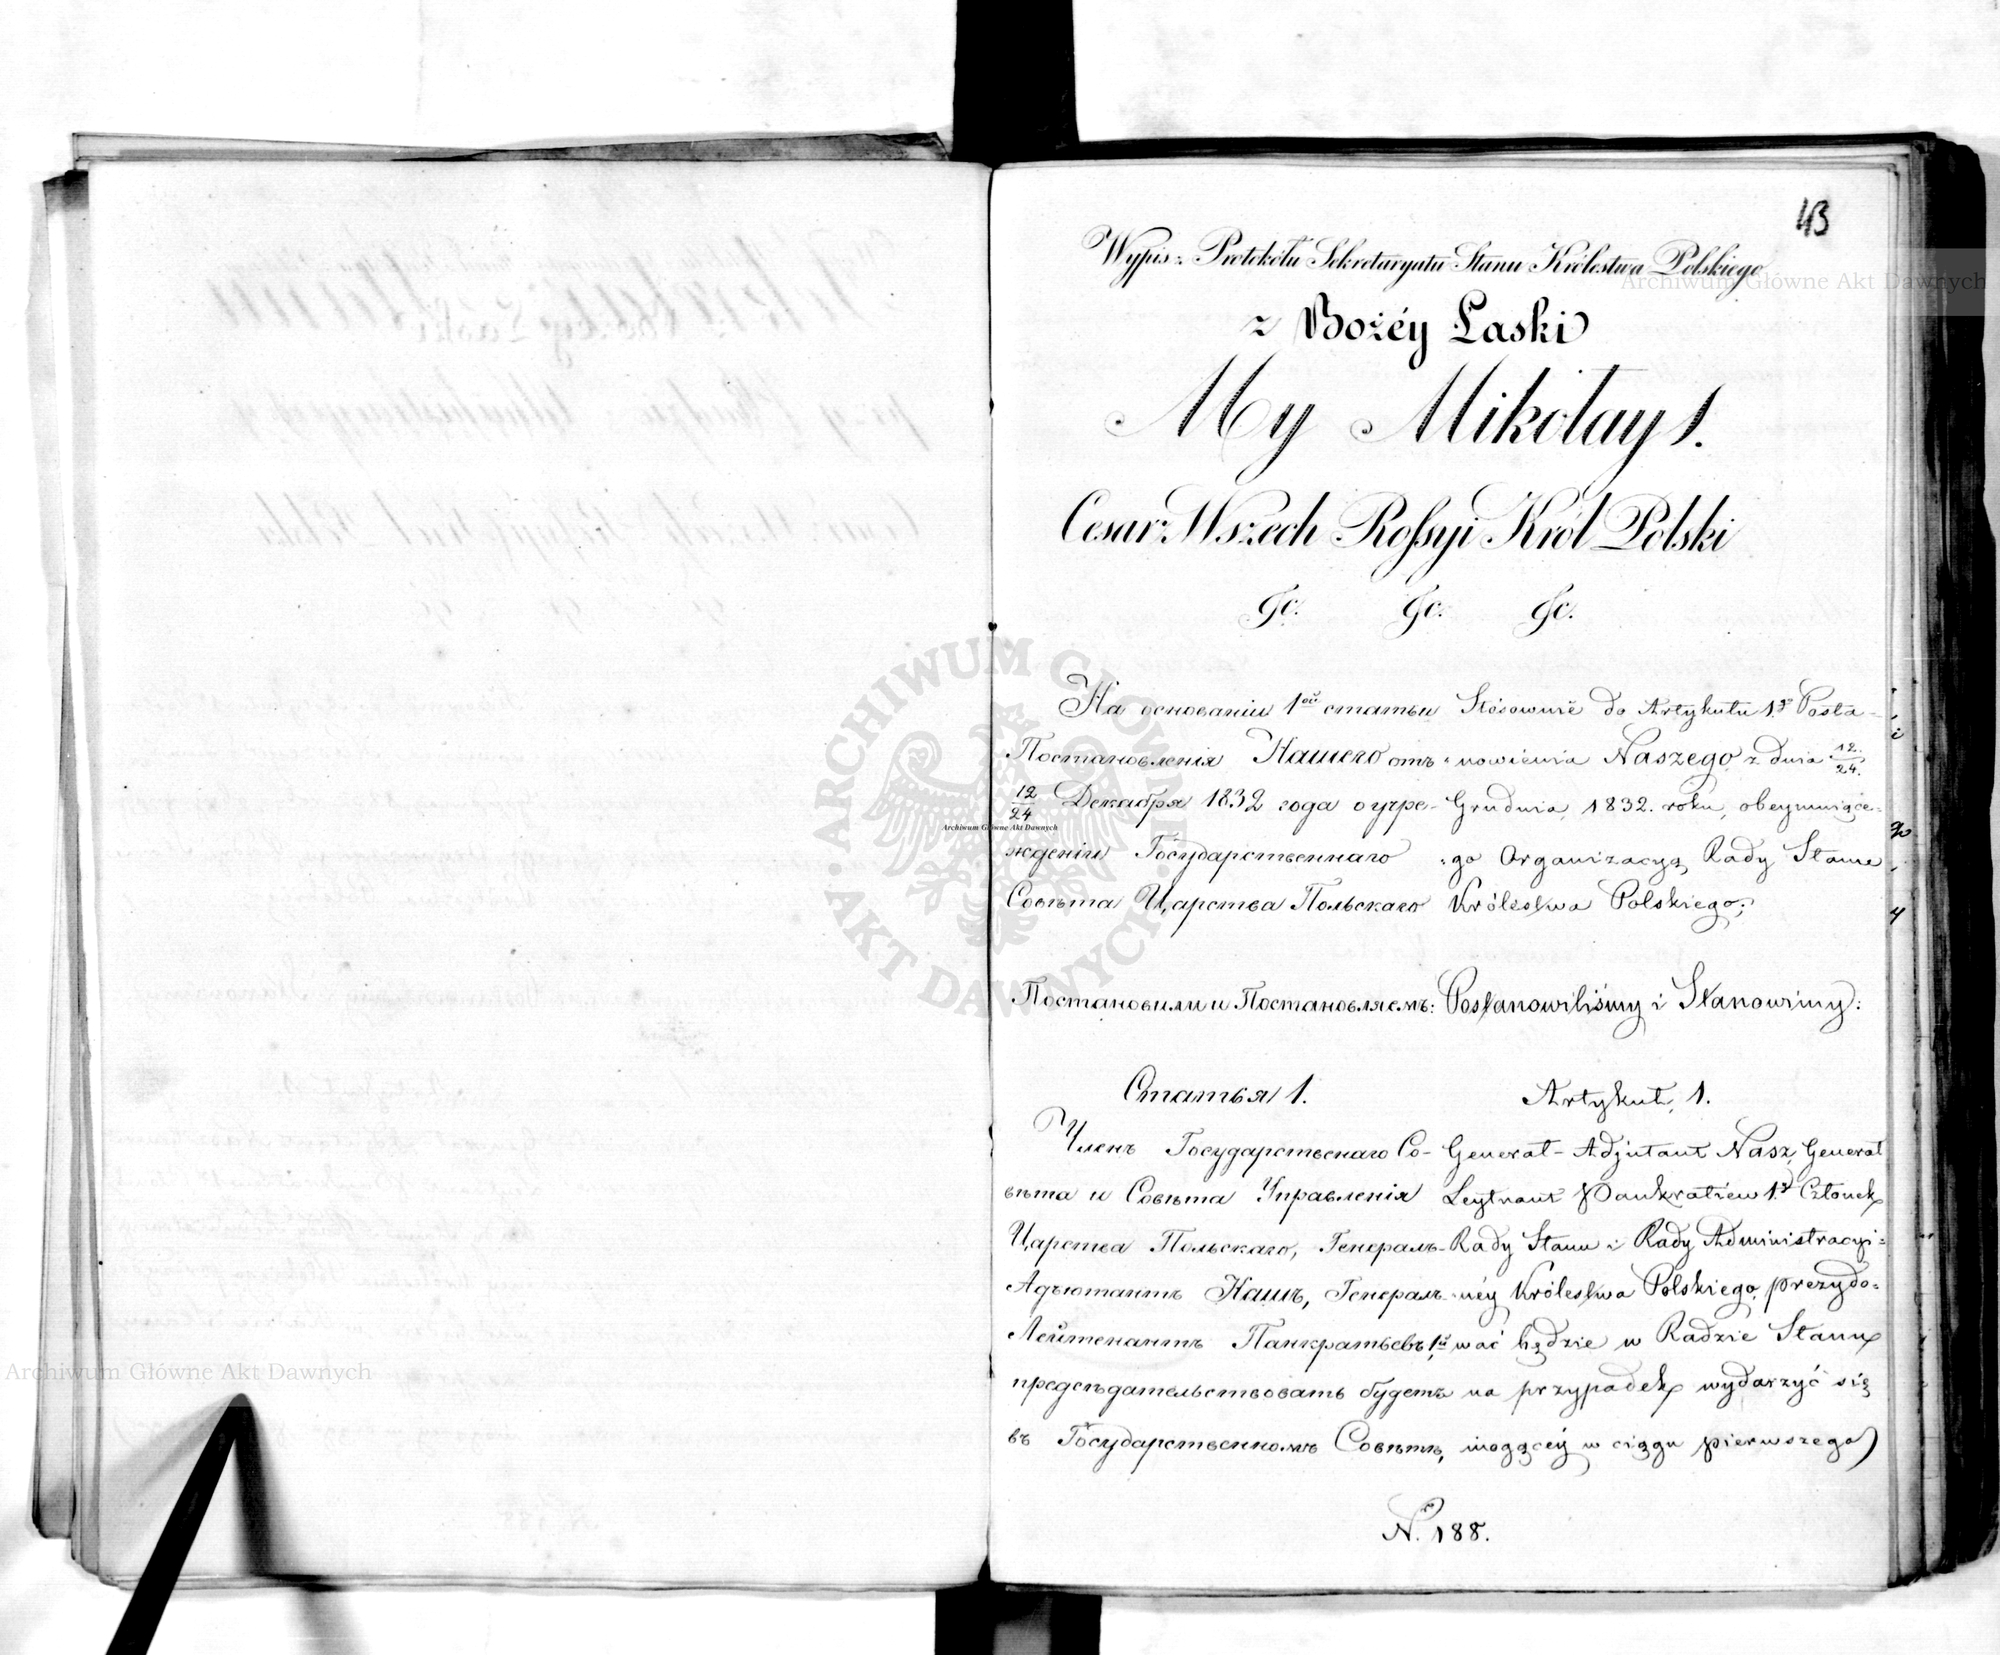 43
Wypis z Protokółu Sekretaryatu Stanu Królestwa Polskiego
z Bożéy Łaski
My Mikołay 1.
Cesarz Wszech Rossyi Król Polski
&c. &c. &c.
На основаніи 1ой статьи
Постановленія Нашего отъ
12/24 Декабря 1832 года о учре-
жденіи Государственнаго
Совѣта Царства Польскаго
Постановили и Постановляемъ:
Статья 1.
Членъ Государственаго Со-
вѣта и Совѣта Управленія
Царства Польскаго, Генералъ-
Адъютантъ Нашъ, Генералъ-
Лейтенантъ Панкратьевъ 1й,
предсѣдательствовать будетъ
въ Государственномъ Совѣтѣ,
Stósownie do Artykułu 1go Posta-
nowienia Naszego z dnia 12/24.
Grudnia, 1832. roku, obeymuiące-
go Organizacyą Rady Stanu
Królestwa Polskiego;
Postanowiliśmy i Stanowimy:
Artykuł, 1.
Generał-Adjutant Nasz, Generał
Leytnant Pankratiew 1y Członek
Rady Stanu i Rady Administracyi-
néy Królestwa Polskiego, prezydo-
wać będzie w Radzie Stanu
na przypadek wydarzyć się
mogącéy w ciągu pierwszego
N. 188.
Archiwum Główne Akt Dawnych
Archiwum Główne Akt Dawnych
Archiwum Główne Akt Dawnych
ARCHIWUM GŁÓWNE AKT DAWNYCH